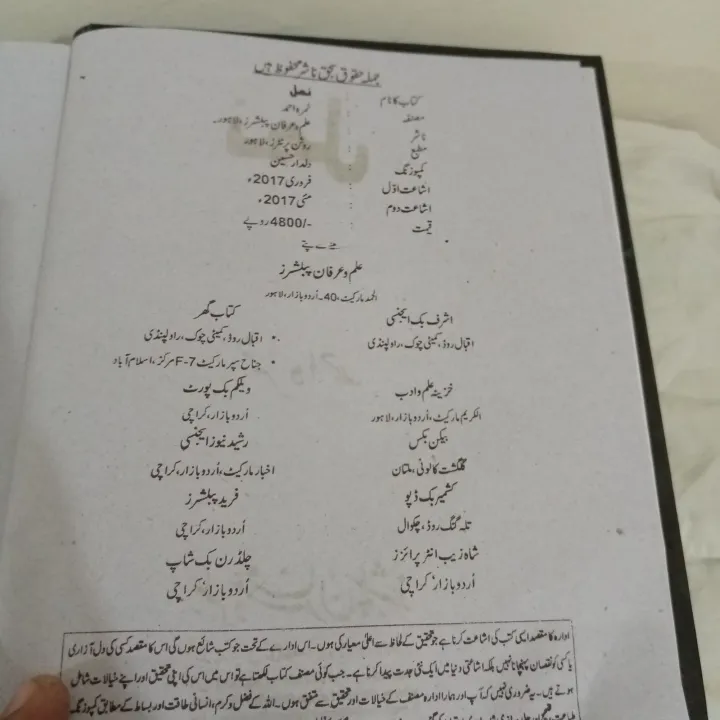 جملہ حقوق بحق ناشر محفوظ ہیں
کتاب کا نام : نمل
مصنفہ : نمرہ احمد
ناشر : علم و عرفان پبلشرز، لاہور۔
مطبع : روشن پرنٹرز، لاہور
کمپوزنگ : دلدار حسین
اشاعت اوّل : فروری 2017ء
اشاعت دوم : مئی 2017ء
قیمت : 4800/- روپے
ملنے کے پتے
علم و عرفان پبلشرز
الحمد مارکیٹ، 40۔اُردو بازار، لاہور
اشرف بک ایجنسی
اقبال روڈ، کمیٹی چوک، راولپنڈی
کتاب گھر
اقبال روڈ، کمیٹی چوک، راولپنڈی
جناح سپر مارکیٹ F-7 مرکز، اسلام آباد
خزینہ علم و ادب
الکریم مارکیٹ، اُردو بازار، لاہور
ویلکم بک پورٹ
اُردو بازار، کراچی
بیکن بکس
گلگشت کالونی، ملتان
رشید نیوز ایجنسی
اخبار مارکیٹ، اُردو بازار، کراچی
کشمیر بک ڈپو
تلہ گنگ روڈ، چکوال
فرید پبلشرز
اُردو بازار، کراچی
شاہ زیب انٹر پرائزز
اُردو بازار، کراچی
چلڈرن بک شاپ
اُردو بازار، کراچی
ادارہ کا مقصد ایسی کتب کی اشاعت کرنا ہے جو تحقیق کے لحاظ سے اعلیٰ معیار کی ہوں۔ اس ادارے کے تحت جو کتب شائع ہوں گی اس کا مقصد کسی کی دل آزاری
یا کسی کو نقصان پہنچانا نہیں بلکہ اشاعتی دنیا میں ایک نئی جدت پیدا کرنا ہے۔ جب کوئی مصنف کتاب لکھتا ہے تو اس میں اس کی اپنی تحقیق اور اپنے خیالات شامل
ہوتے ہیں۔ یہ ضروری نہیں کہ آپ اور ہمارا ادارہ مصنف کے خیالات اور تحقیق سے متفق ہوں۔ اللہ کے فضل و کرم، انسانی طاقت اور بساط کے مطابق کمپوزنگ